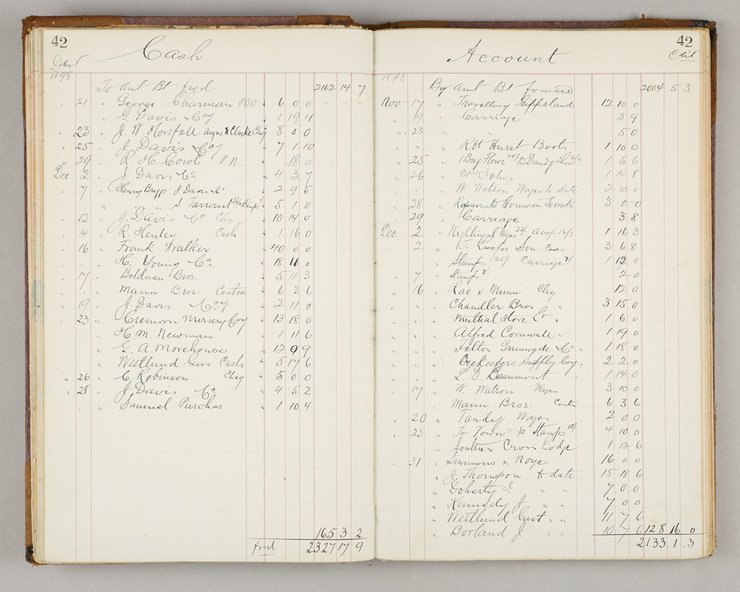 42
Cash
1895
To Amt Bt fwd 2162 14 7
21 " George Chairman 6 0 0
" G Davis Coy 1 19 4
23 " J. W. Horsfall 8 0 0
25 " J Davis Coy 7 1 10
29 " R H Cowl 18 0
Dec 2 " J Davis Co 4 3 7
7 " Henry Briggs J Davis Co 2 9 6
" " S Tarrant 5 1 0
12 " J. Davis Co Chq 10 14 0
14 " R Henley Cash 1 16 0
16 " Frank Walker 40 0 0
" H. Young Co. 18 11 0
17 " Bolduan Bros 5 11 3
" Mann Bros Contra 6 3 6
19 " J Davis Coy 2 11 0
23 " Cremorn Nursery Coy 13 18 0
" H. M. Newman 1 11 6
" G. A. Morehouse 12 9 9
" Westlund Gus Cash 5 17 6
" 26 " C Robinson Chq 5 0 0
" 28 " J. Davis Co 4 5 2
" Samuel Purchas 1 10 4
165 3 2
fwd 2327 17 9
42
Account
1895
By Amt Bt forward 2004 5 3
Nov 17 " Travelling Gippsland 12 10 0
" 19 " Carriage 3 9
" 23 " 5 0
" Robt Hunt Boots 1 10 0
" 25 " 1 Bag Flour 1 6 6
" 26 " Wm John 1 14 8
" W Watson Wages to date 2 10 0
" 28 " 3 0 0
29 " Carriage 3 8
Dec 2 " 1 16 3
2 " Son 3 6 8
" Stamps 25/ Carriage 1 12 0
" 7 " Stamps 2 0
" 16 " Rae & Munn Chq 12 0
" Chandler Bros " 3 15 0
" Mutual Store Ld " 1 6 0
" Alfred Cornwall " 1 19 0
" Felton Grimwade Co " 1 18 0
" Beekeepers Supply Coy 2 2 0
" L. D. Beaumont 1 14 0
" 17 " W Watson Wages 3 10 0
" Mann Bros Contra 6 3 6
" 20 " Tandy Wages 2 0 0
" 23 " To Town Stamps 4 10 0
" Southern Cross Lodge 1 12 6
" 31 " Simmons & Noye 16 0 0
" J. Thompson to date 15 18 6
" Doherty J. " " 7 0 0
" Kennedy J " " 7 0 0
" Westlund Gust " " 11 7 6
" Borland J " 10 7 6 128 16 0
2133 1 3